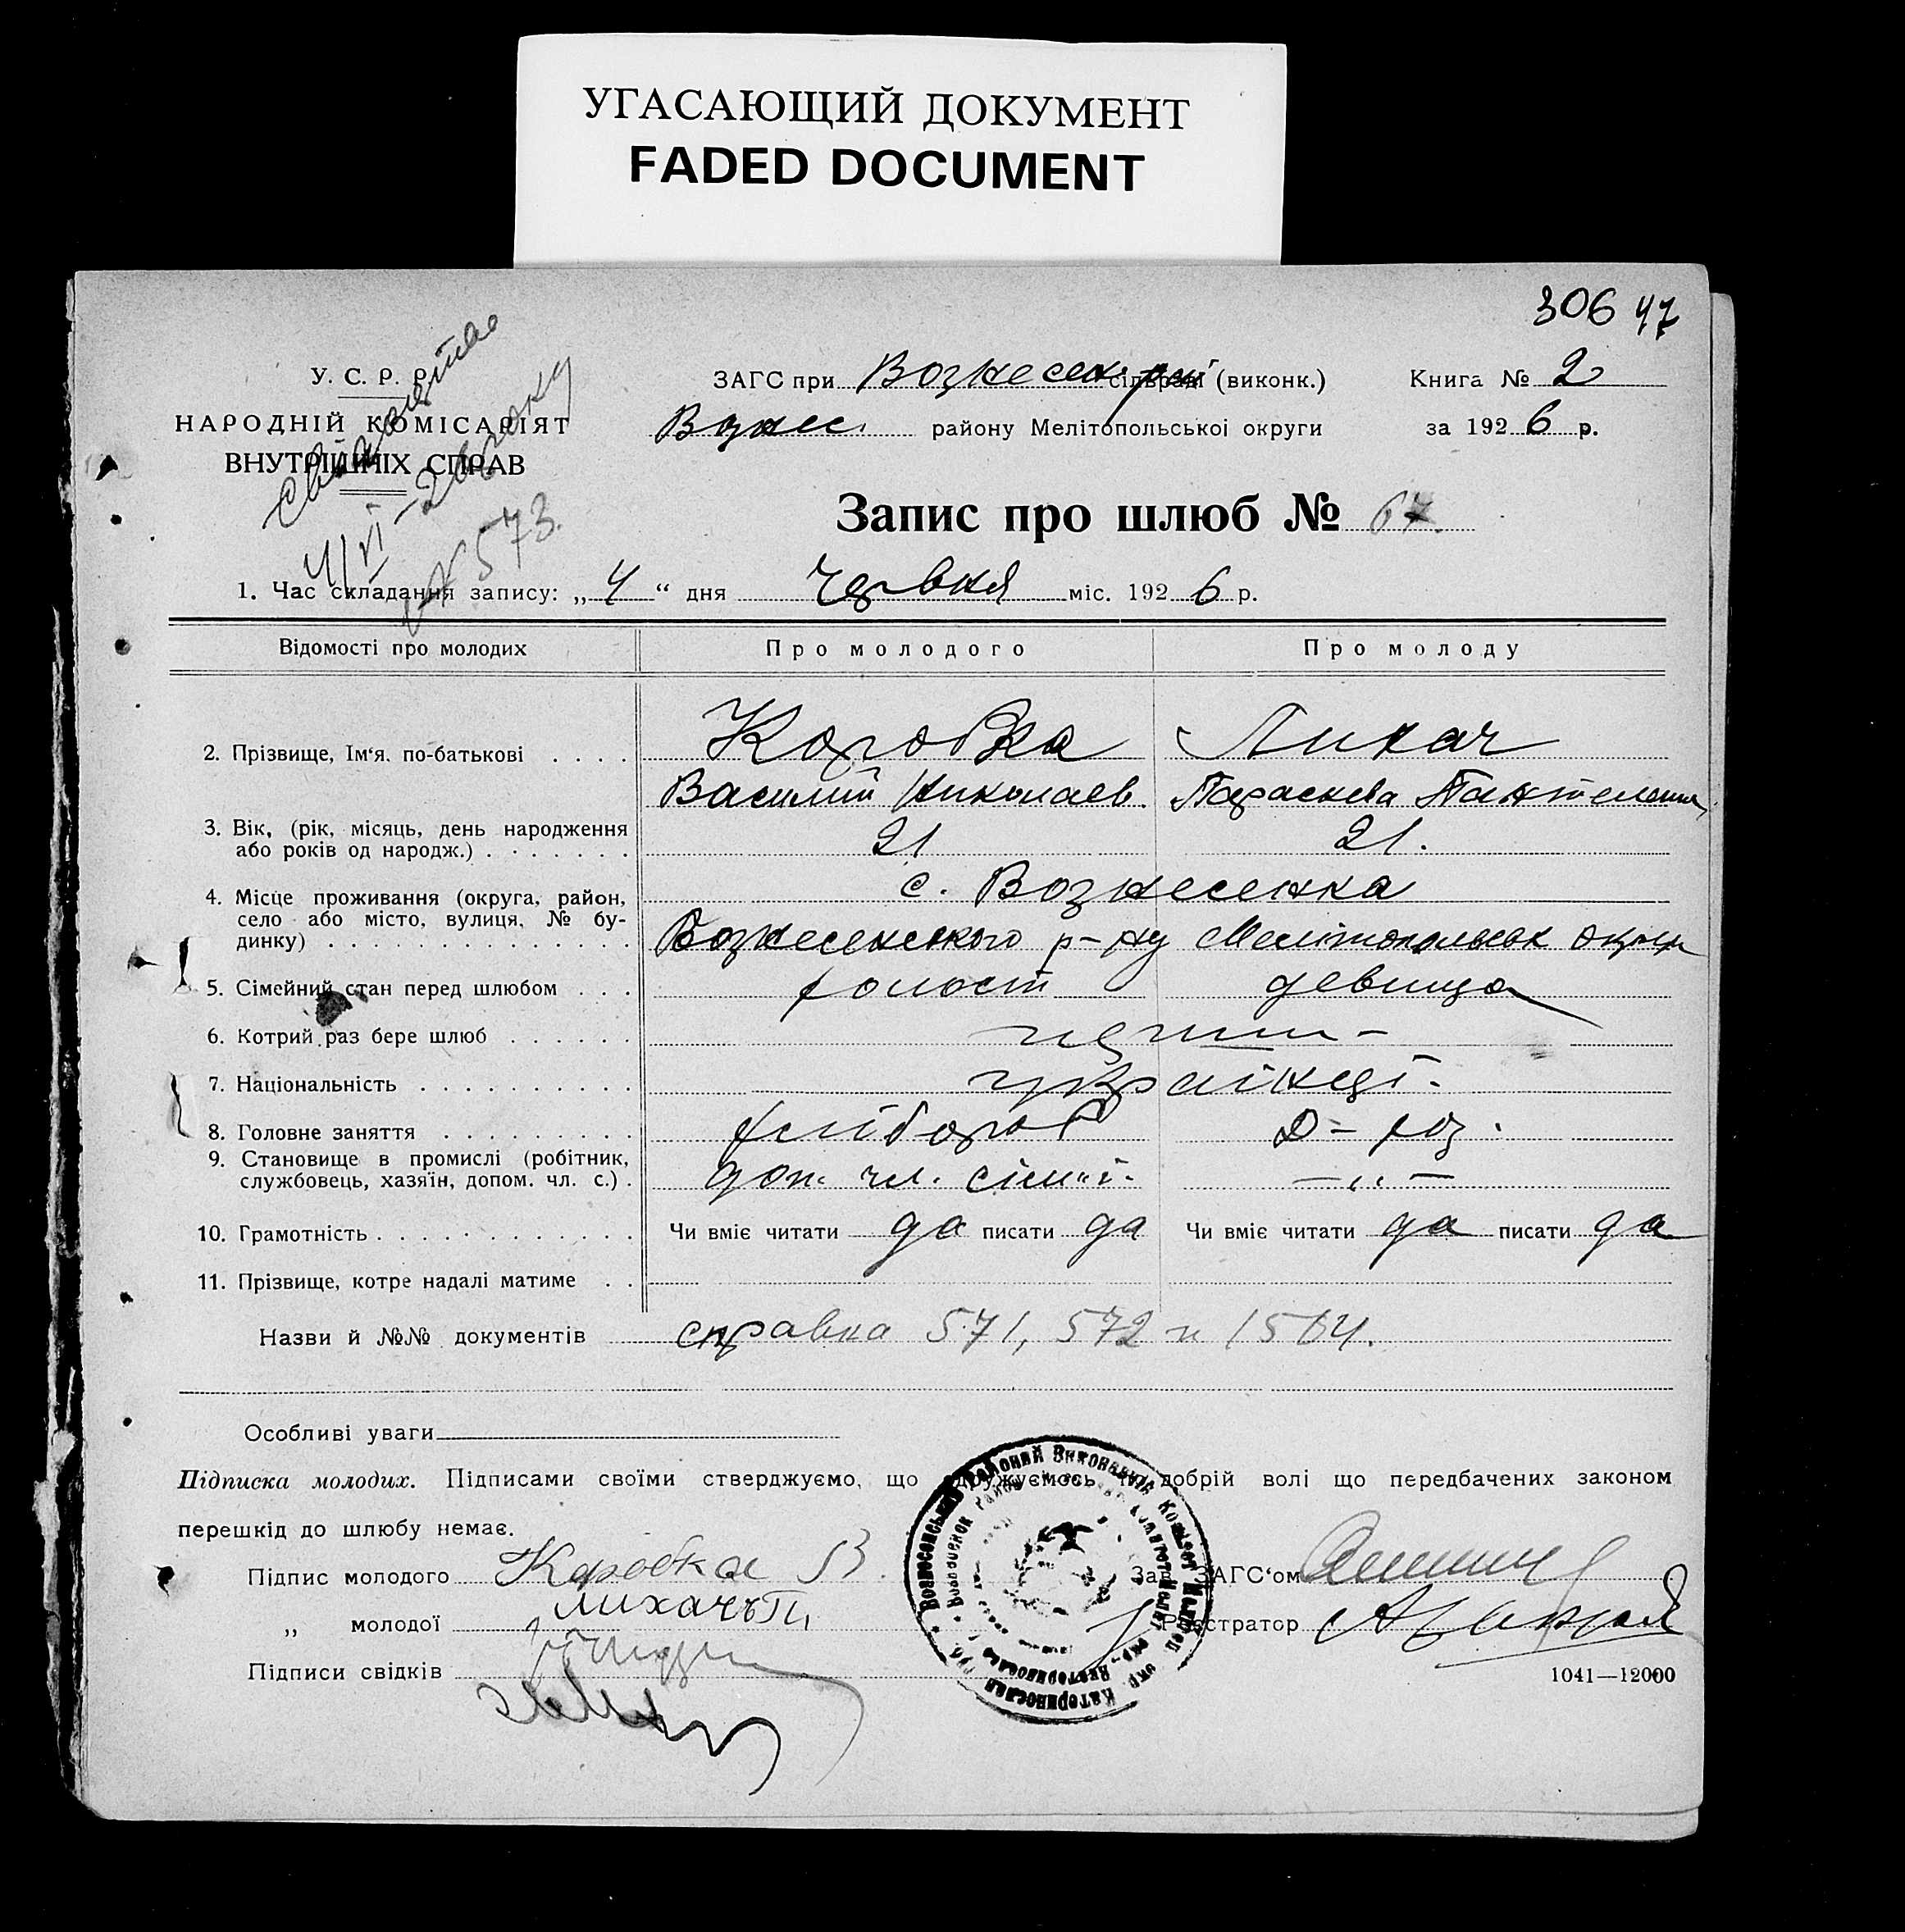 УГАСАЮЩИЙ ДОКУМЕНТ
FADED DOCUMENT
306 47
У. С. Р. Р.
НАРОДНІЙ КОМІСАРІЯТ
ВНУТРІШНІХ СПРАВ
4/VI-26 року
№ 573.
ЗАГС при Вознесен. сільраді (виконк.) Книга № 2
Вознес. району Мелітопольської округи за 1926 р.
Запис про шлюб № 67.
1. Час складання запису: „4“ дня Червня міс. 1926 р.
Відомості про молодих Про молодого Про молоду
2. Прізвище, Ім‘я, по-батькові Коробка Лихач
Василий Николаев. Параскева
3. Вік, (рік, місяць, день народження або років од народж.) 21 21.
4. Місце проживання (округа, район, село або місто, вулиця, № будинку) с. Вознесенка
Вознесенського р-ну Мелітопольськ округи
5. Сімейний стан перед шлюбом холост девица
6. Котрий раз бере шлюб
7. Національність українці.
8. Головне заняття хлібороб Д-хоз.
9. Становище в промислі (робітник, службовець, хазяїн, допом. чл. с.) доп. чл. сім'ї. — „ —
10. Грамотність Чи вміє читати да писати да Чи вміє читати да писати да
11. Прізвище, котре надалі матиме
Назви й №№ документів справка 571, 572 и 1564.
Особливі уваги
Підписка молодих. Підписами своїми стверджуємо, що одружуємось по добрій волі що передбачених законом
перешкід до шлюбу немає.
Підпис молодого Коробка В. Зав. ЗАГС‘ом
„ молодої Лихачъ П. Реєстратор
Підписи свідків
1041—12000